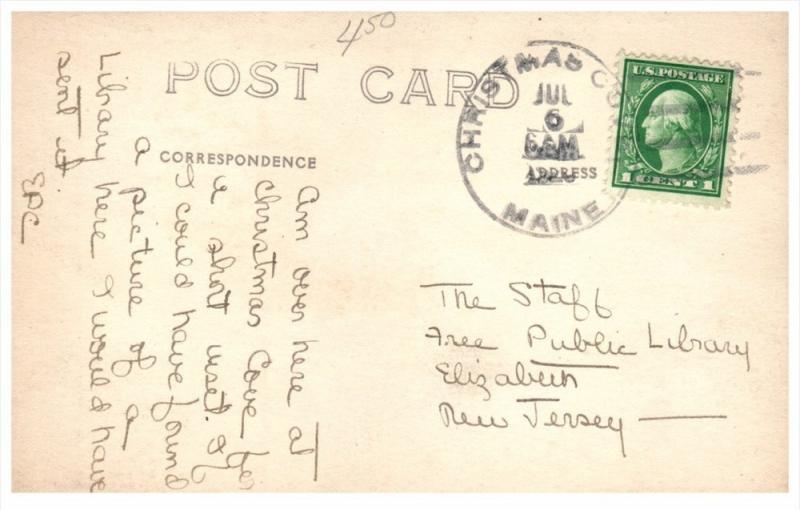 450
POST CARD
CHRISTMAS CO
JUL
6
6 AM
MAINE
U.S. POSTAGE
1 CENT 1
CORRESPONDENCE
ADDRESS
Am over here at
Christmas Cove for
a short rest. If
I could have found
a picture of a
Library here I would have
sent it.
The Staff
Free Public Library
Elizabeth
New Jersey